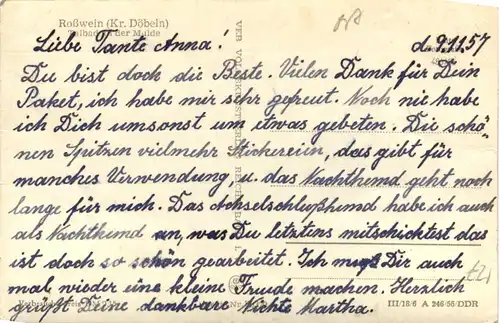 Roßwein (Kr. Döbeln)
Talbad an der Mulde
Liebe Tante Anna!
d. 9.11.57
Du bist doch die Beste. Vielen Dank für Dein
Paket, ich habe mir sehr gefreut. Noch nie habe
ich Dich umsonst um etwas gebeten. Die schö-
nen Spitzen vielmehr Stickereien, das gibt für
manches Verwendung, u. das Nachthemd geht noch
lange für mich. Das Achselschlußhemd habe ich auch
als Nachthemd an, was Du letztens mitschicktest das
ist doch so schön gearbeitet. Ich muß Dir auch
mal wieder eine kleine Freude machen. Herzlich
grüßt Deine dankbare Nichte Martha.
III/18/6 A 246/56 DDR